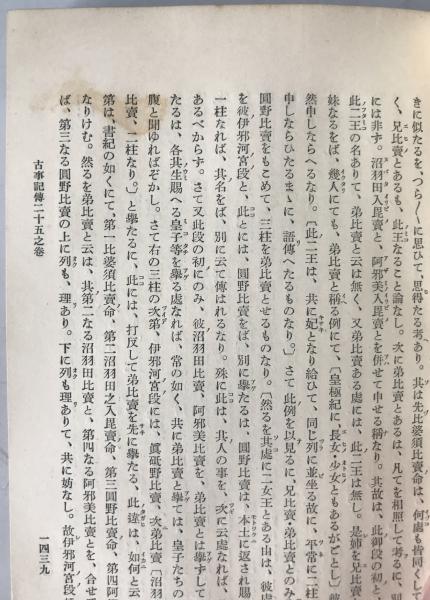 きに似たるを、つら〳〵に思ひて、思得たる考あり。其は先比婆須比賣命は、何處も皆同くして
く、兄比賣とあるも、此王なること論なし。次に弟比賣とあるは、凡てを相照して考るに、別
には非ず。沼羽田入毘賣と、阿邪美入毘賣とを併せて申せる稱なり。其故は、此御段の初と、
此二王の名ありて、弟比賣と云は無く、又弟比賣ある處には、此二王は無し。是姉を兄比賣
妹なるをば、幾人にても、弟比賣と稱る例にて、〔皇極紀に、長女・少女ともあるがごとし〕彼
然申しならへるなり。〔此二王は、共に妃となり給ひて、同じ列に並坐る故に、平常に二柱
申しならひたるまゝに、語傳へたるものなり。〕さて此例を以見るに、兄比賣・弟比賣とのみ
圓野比賣をもこめて、三柱を弟比賣とせるものなり。〔然るを其處に二女王とある由は、彼處
を彼伊邪河宮段と、此とには、圓野比賣をば、別に擧たるは、圓野比賣は、本土に返され賜
一柱なれば、其名をば、別に云て傳はれるなり。殊に此は、其人の事を、次に云處なれば、
あるべからず。さて又此段の初にのみ、彼沼羽田比賣、阿邪美比賣を、弟比賣とは擧ずして
たるは、各其生賜へる皇子等を擧る處なれば、常の如く、共に弟比賣と擧ては、皇子たちの
腹と聞ゆればぞかし。さて右の三柱の次第、伊邪河宮段には、眞砥野比賣、次弟比賣〔沼羽
比賣、二柱なり。〕と擧たるに、此には、打反して弟比賣を先に擧たる、此違は、如何と云
第は、書紀の如くにて、第一比婆須比賣命、第二沼羽田之入毘賣命、第三圓野比賣命、第四阿
なりけむ。然るを弟比賣と云は、其第二なる沼羽田比賣と、第四なる阿邪美比賣とを、合せ
ば、第三なる圓野比賣の上に列も、理あり。下に列も理ありて、共に妨なし。故伊邪河宮段
古事記傳二十五之卷
一四三九